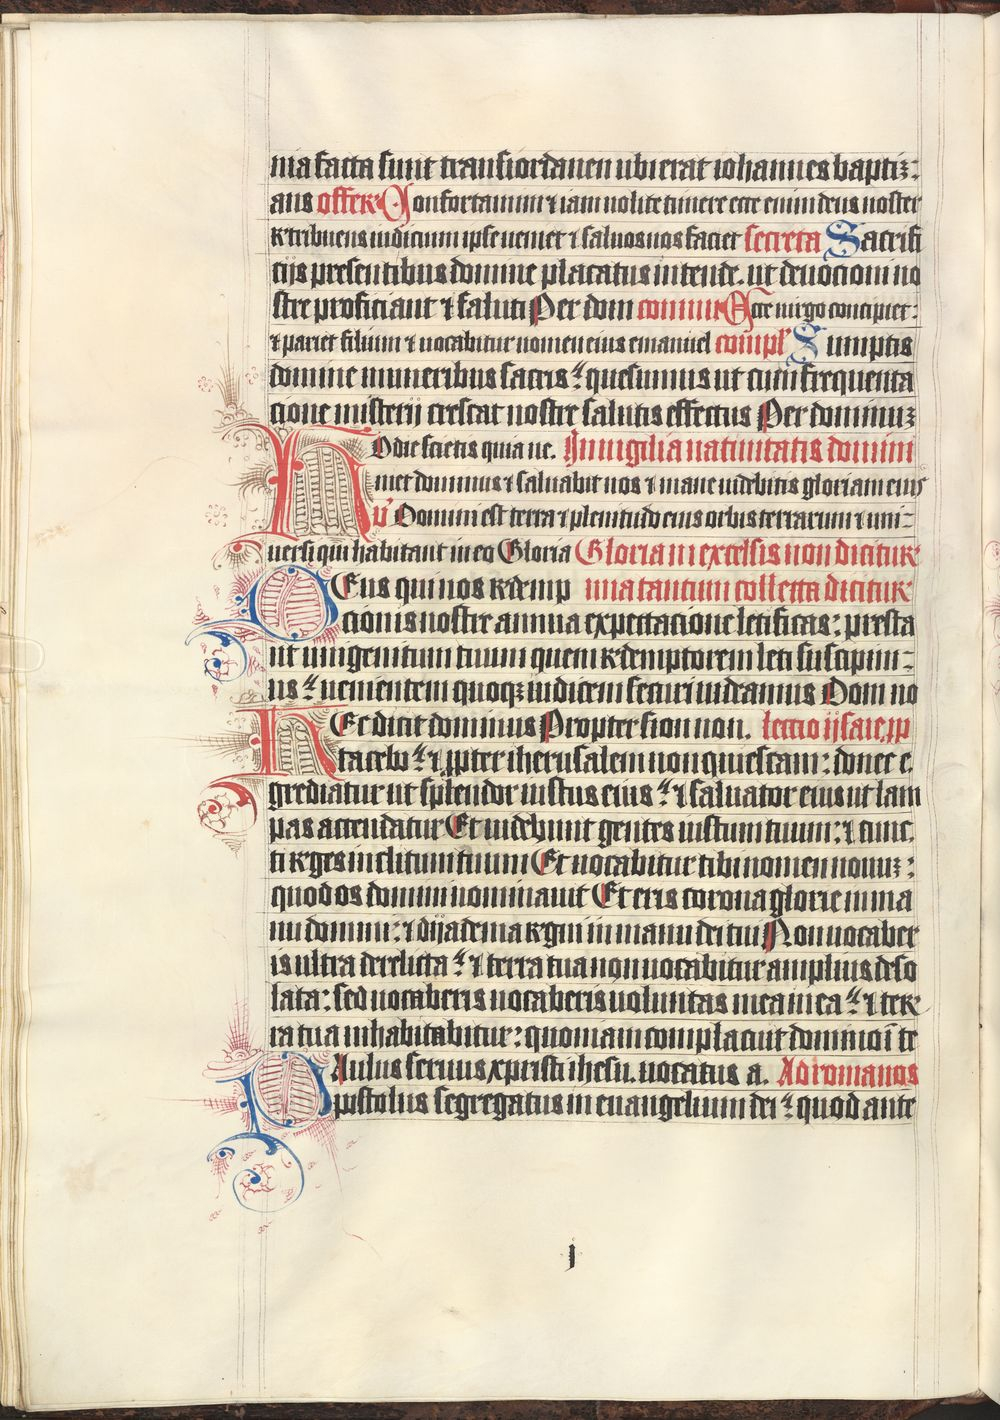 nia facta sunt trans iordanen ubi erat iohannes baptiz-
ans offer Confortamini ⁊ iam nolite timere ecce enim deus noster
retribuens iudicium ipse veniet ⁊ saluos nos faciet secreta Sacrifi
cijs presentibus domine placatus intende. ut deuocioni no
stre proficiant ⁊ saluti Per dom commu Ecce uirgo concipiet:
⁊ pariet filium ⁊ uocabitur nomen eius emanuel compl Sumptis
domine muneribus sacris: quesumus ut cum frequenta
cione misterij crescat nostre salutis effectus Per dominuz
Hodie scietis quia ue. In uigilia natiuitatis domini
niet dominus ⁊ saluabit nos ⁊ mane uidebitis gloriam eius
v Domini est terra ⁊ plenitudo eius orbis terrarum ⁊ uni-
uersi qui habitant in eo Gloria Gloria in excelsis non dicitur
Deus qui nos redemp una tantum collecta dicitur
cionis nostre annua expectacione letificas: presta
ut unigenitum tuum quem redemptorem leti suscipim-
us: uenientem quoqz iudicem securi uideamus Dom no
Hec dicit dominus Propter sion non. lectio ijsaie pp
tacebo: ⁊ ppter iherusalem non quiescam: donec e.
grediatur ut splendor iustus eius: ⁊ saluator eius ut lam
pas accendatur Et uidebunt gentes iustum tuum: ⁊ cunc.
ti reges inclitum tuum Et uocabitur tibi nomen nouuz:
quod os domini nominauit Et eris corona glorie in ma
nu domini: ⁊ dijadema regni in manu dei tui Non uocaber
is ultra derelicta: ⁊ terra tua non uocabitur amplius deso
lata: sed uocaberis uocaberis uoluntas mea in ea: ⁊ ter
ra tua inhabitabitur: quoniam complacuit domino in te
Paulus seruus xpristi ihesu. uocatus a. Ad romanos
postolus segregatus in euangelium dei: quod ante
j